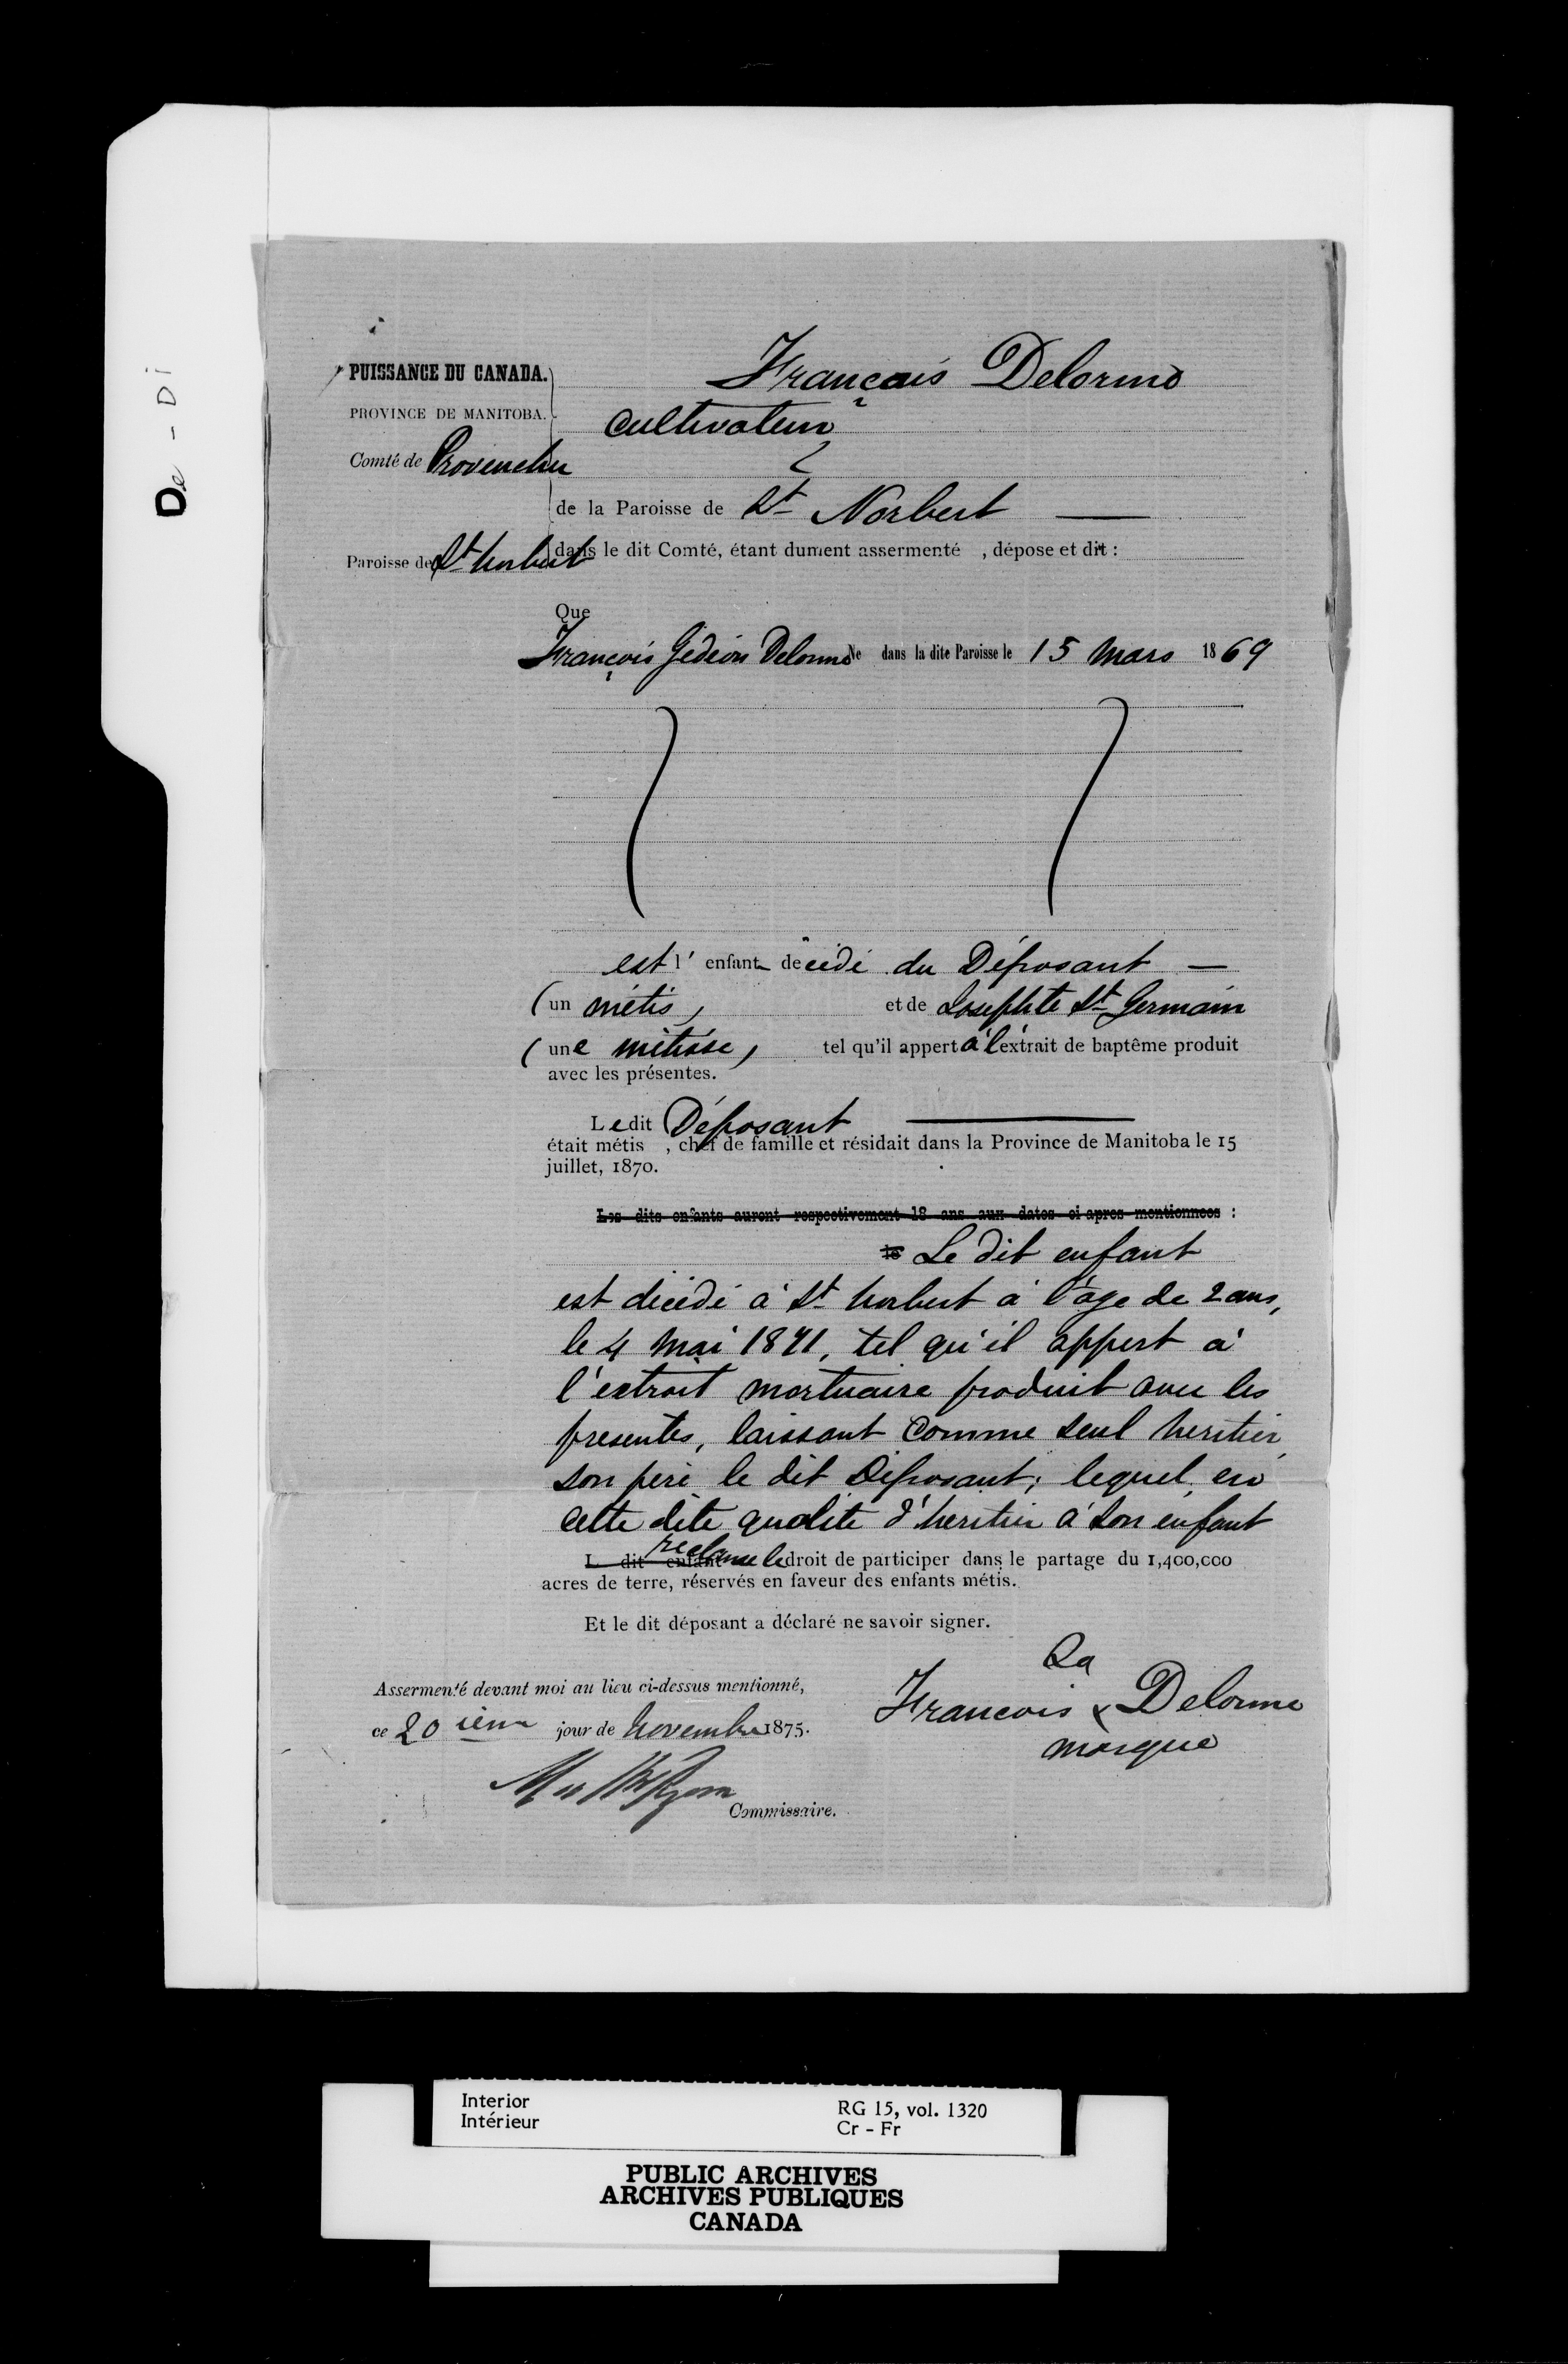 De - Di
PUISSANCE DU CANADA.
PROVINCE DE MANITOBA.
Comté de Provencher
Paroisse de St Norbert
François Delorme
Cultivateur
de la Paroisse de St Norbert
dans le dit Comté, étant dument assermenté , dépose et dit :
Que
François Gédéon Delorme Ne dans la dite Paroisse le 15 Mars 1869
est l' enfant décédé du Déposant
(un métis, et de Josephte St Germain
(une métisse, tel qu'il appert à l'extrait de baptême produit
avec les présentes.
Le dit Déposant
était métis , chef de famille et résidait dans la Province de Manitoba le 15
juillet, 1870.
Les dits enfants auront respectivement 18 ans aux dates ci apres mentionnees :
18 Le dit enfant
est décédé à St Norbert à l'âge de 2 ans,
le 4 Mai 1871, tel qu'il appert à
l'extrait mortuaire produit avec les
presentes, laissant Comme seul heritier,
son père le dit Déposant; lequel, en
cette dite qualité d'heritier à son enfant
L dit enfant reclame le droit de participer dans le partage du 1,400,000
acres de terre, réservés en faveur des enfants métis.
Et le dit déposant a déclaré ne savoir signer.
Assermenté devant moi au lieu ci-dessus mentionné,
ce 20 ième jour de Novembre 1875.
Commissaire.
Sa
Francois x Delorme
marque
Interior
Intérieur
RG 15, vol. 1320
Cr - Fr
PUBLIC ARCHIVES
ARCHIVES PUBLIQUES
CANADA